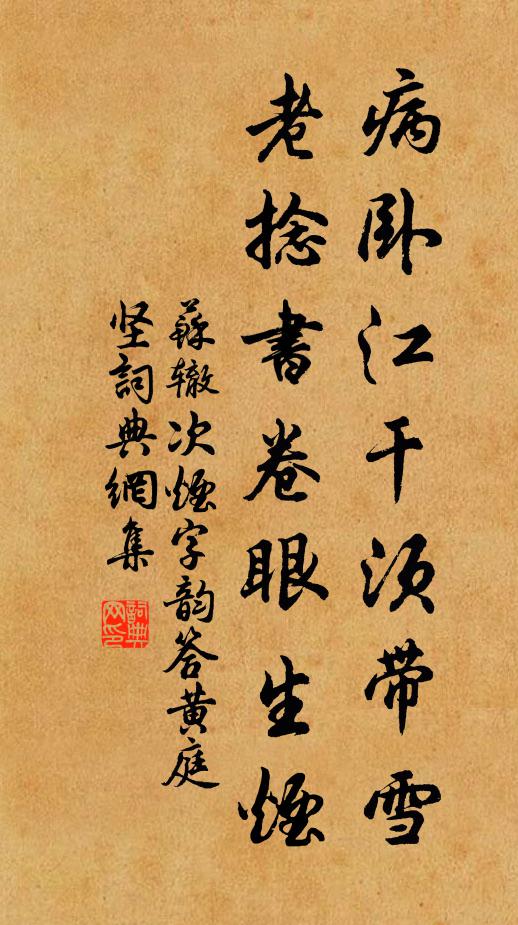 病卧江干须带雪
老捻书卷眼生烟
苏辙次烟字韵答黄庭
坚词典网集
词典网印